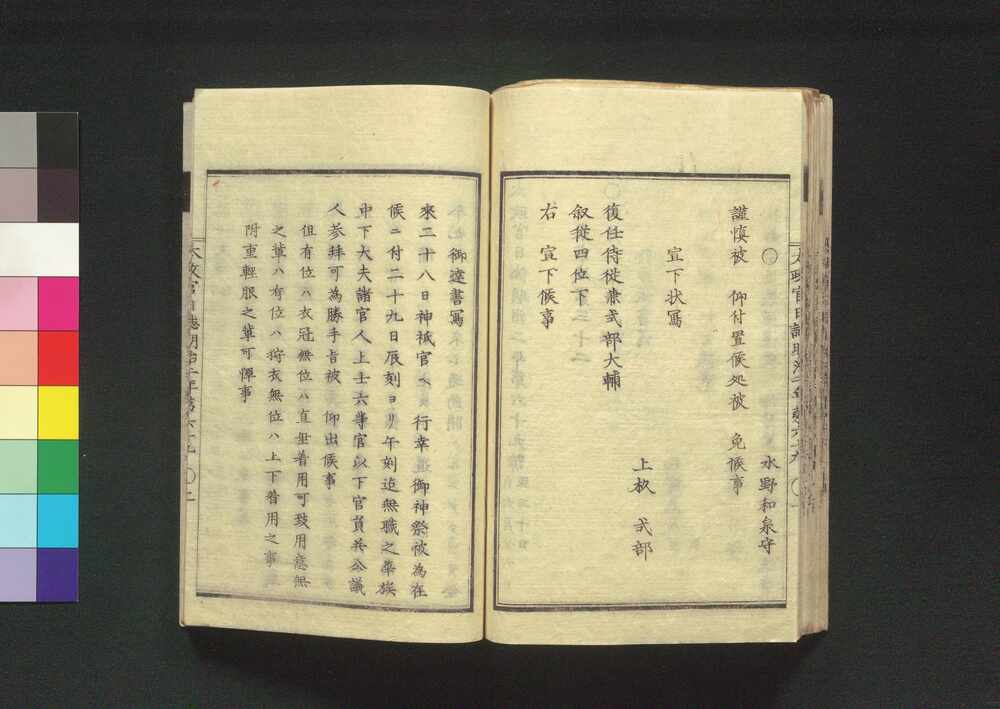 水野和泉守
謹慎被　仰付置候処被　免候事
○
宣下状写
上杉　式部
○
復任侍従兼式部大輔
叙従四位下
右　宣下候事
太政官日誌明治二年第六十九　○
御達書写
来二十八日神祇官ヘ　行幸　御神祭被為在
候ニ付二十九日辰刻ヨリ午刻迄無職之華族
中下大夫諸官人上士六等官以下官員并公議
人参拝可為勝手旨被　仰出候事
但有位ハ衣冠無位ハ直垂着用可致用意無
之輩ハ有位ハ狩衣無位ハ上下着用之事
附重軽服之輩可憚事
太政官日誌明治二年第六十九　○二